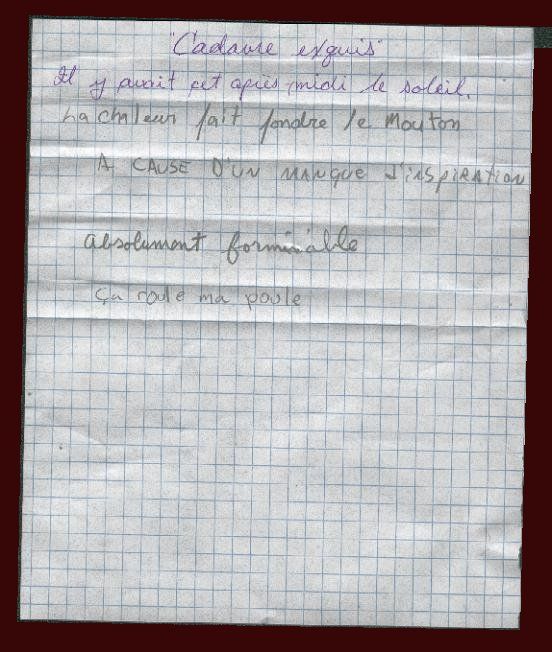 "Cadavre exquis"
Il y avait cet après-midi le soleil.
La chaleur fait fondre le Mouton
A CAUSE D'UN MANQUE D'INSPIRATION
absolument formidable
ça roule ma poule